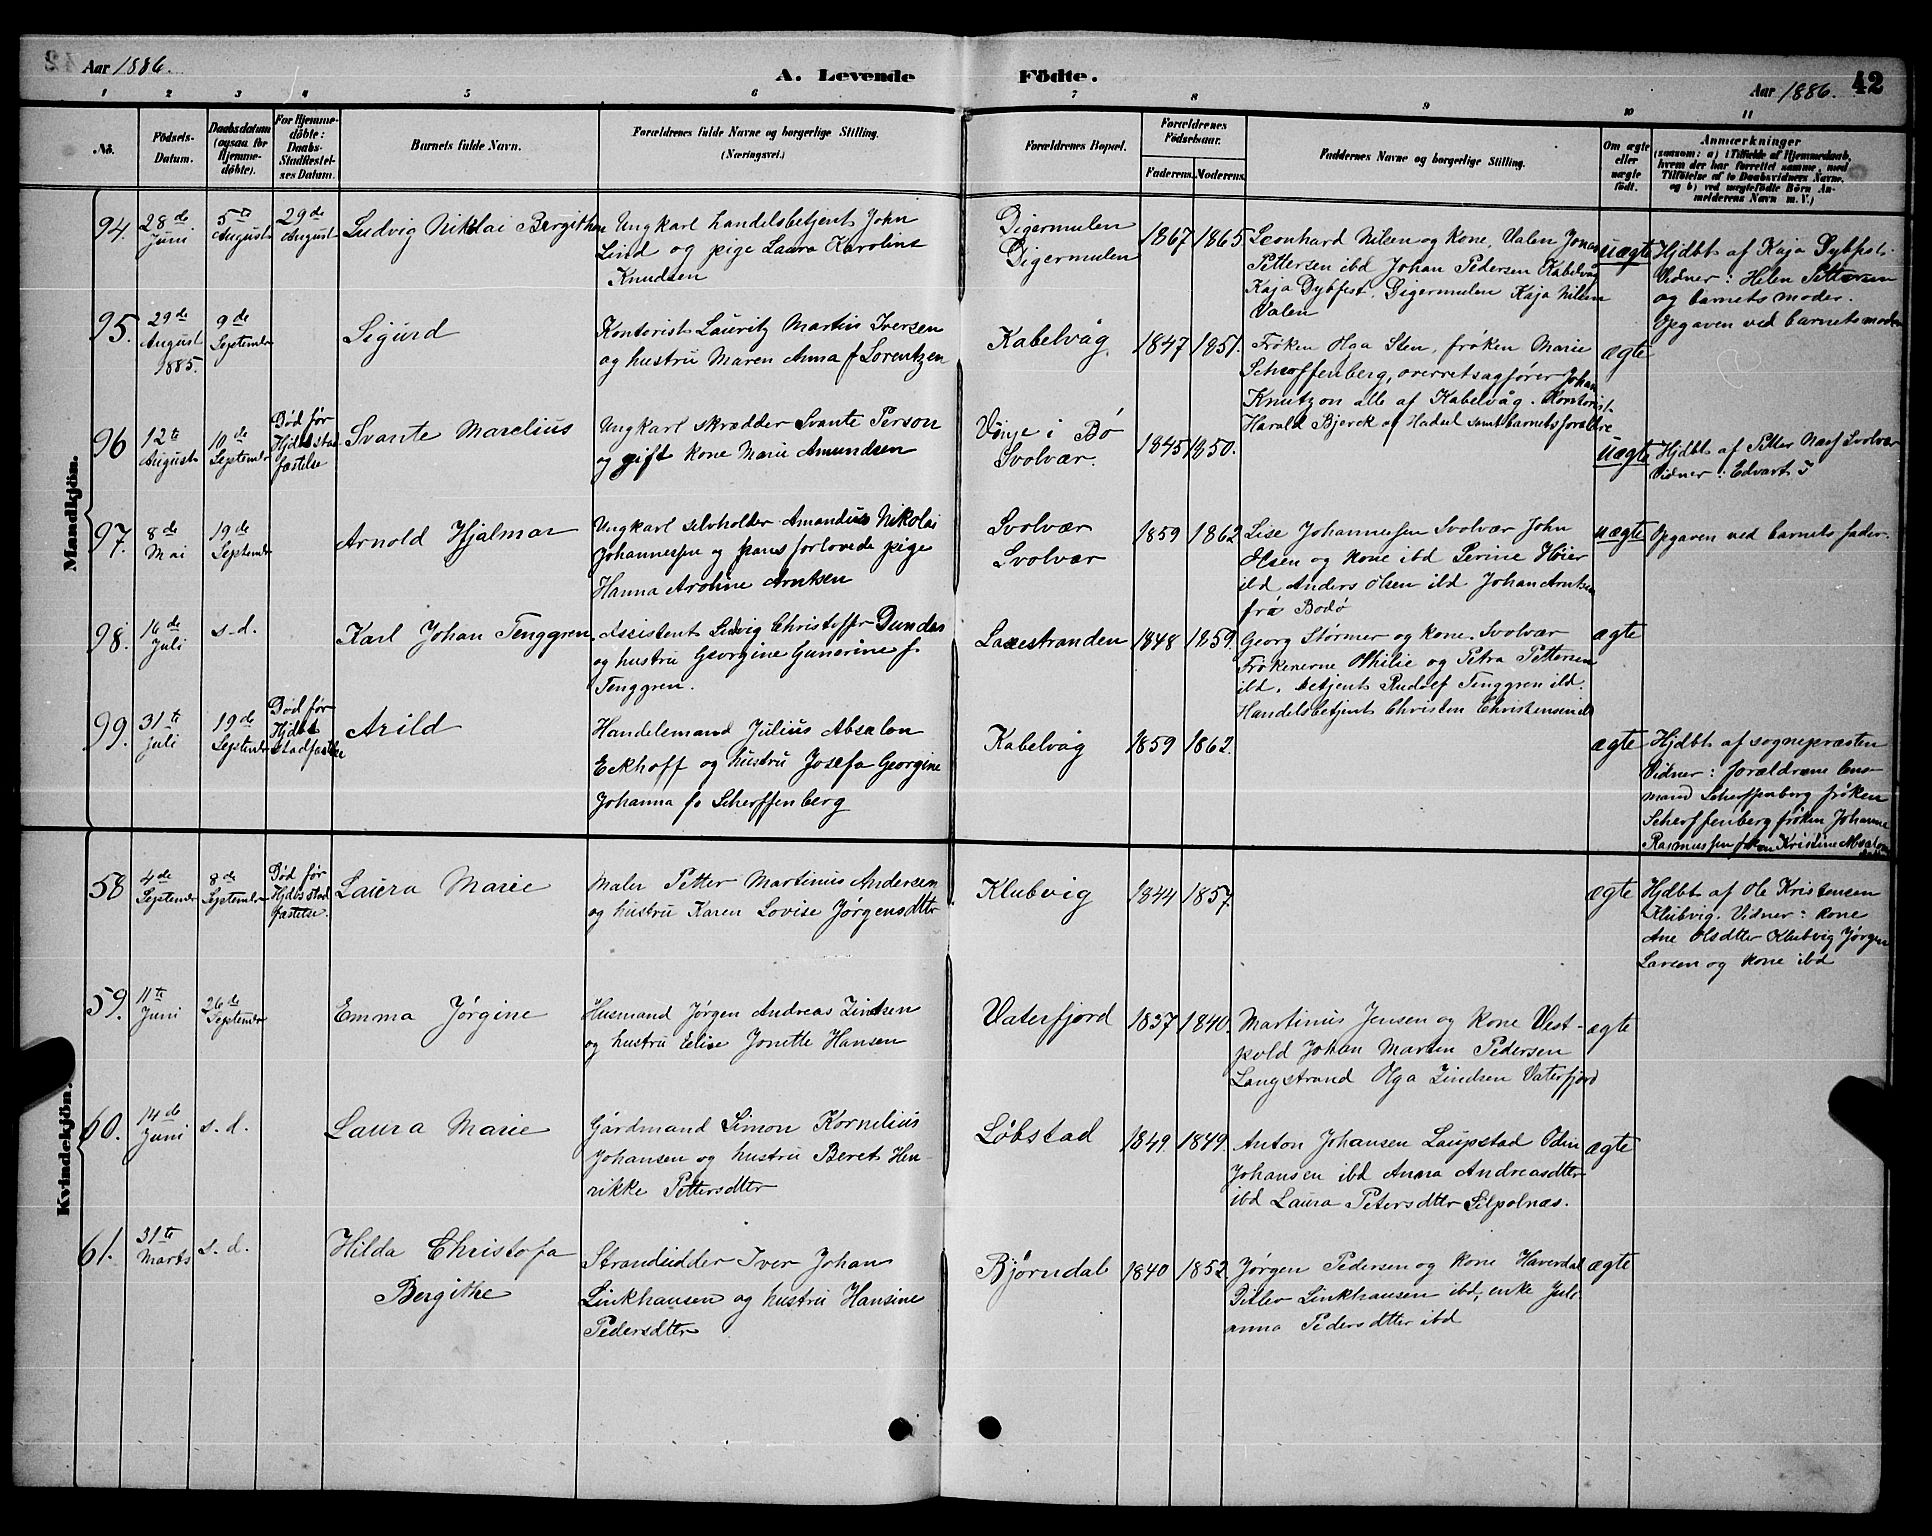 Aar 1886.
A. Levende Födte.
Aar 1886. 42
1 2 3 4 5 6 7 8 9 10 11
No.
Födsels-Datum.
Daabsdatum (ogsaa for Hjemmedöbte).
For Hjemmedöbte: Daabs-Stadfæstelses Datum.
Barnets fulde Navn.
Forældrenes fulde Navne og borgerlige Stilling. (Næringsvei.)
Forældrenes Bopæl.
Forældrenes Födselsaar.
Faderens. Moderens.
Faddernes Navne og borgerlige Stilling.
Om ægte eller uægte födt.
Anmærkninger (saasom: a) i Tilfælde af Hjemmedaab, hvem der har forrettet samme, med Tilföielse af to Daabsvidners Navne, og b) ved uægtefödte Börn Anmelderens Navn m. V.)
Mandkjön.
94. 28de Juni 5te August 29de August Ludvig Nikolai Bergithon
Ungkarl handelsbetjent John
Lind og pige Laura Karoline
Knudsen
Digermulen
Digermulen
1867 1865
Leonhard Nilsen og kone, Valen Jonas
Pettersen ibd Johan Pedersen Kabelvåg
Kaja Dybfest, Digermulen Kaja Nilsen
Valen
uægte
Hjdbt af Kaja Dybfest.
Vidner: Helen Pettersen
og barnets moder.
Opgaven ved barnets moder
95. 29de August 1885. 9de September Sigurd
Kontorist Lauritz Martin Iversen
og hustru Maren Anna f Lorentzen
Kabelvåg 1847 1851.
Frøken Olga Sten, frøken Marie
Scherffenberg, overretsagfører Johan
Knutzon alle af Kabelvåg. Kontorist
Harald Bjerck af Hadsel samt barnets forældre
ægte
96 12te August 10de September Død før Hjdbs stadfæstelse Svante Marelius
Ungkarl skrædder Svante Person
og gift kone Marie Amundsen
Vinje i Bø
Svolvær.
1845 1850.
Uægte
Hjdbt af Petter Næss Svolvær
Vidner: Edvart
97. 8de Mai 19de September Arnold Hjalmar
Ungkarl selvholder Amandus Nikolai
Johannessen og hans forlovede pige
Hanna Aroline Arntsen
Svolvær
Svolvær
1859 1862
Lise Johannessen Svolvær John
Olsen og kone ibd Perine Høier
ibd Anders Olsen ibd Johan Arntsen
fra Bodø
uægte
Opgaven ved barnets fader.
98. 16de Juli s.d. Karl Johan Tenggren.
Assistent Ludvig Christoffer Dundas
og hustru Georgine Gunerine f.
Tenggren.
Laxestranden 1848 1859.
Georg Størmer og kone. Svolvær
Frøkenerne Othilie og Petra Pettersen
ibd. betjent Rudolf Tenggren ibd.
Handelsbetjent Christen Christensen ibd
ægte
99. 31te Juli 19de September Død før Hjdbt stadfæstelse Arild
Handelsmand Julius Absalon
Eckhoff og hustru Josefa Georgine
Johanna fø Scherffenberg
Kabelvåg 1859 1862.
ægte
Hjdbt af sognepræsten
Vidner: forældrene lensmand
Scherffenberg frøken
Scherffenberg frøken Johanne
Rasmussen Kristine
Kvindekjön.
58 4de September 8de September Død før Hjdbs stadfæstelse. Laura Marie
Maler Petter Martinus Andersen
og hustru Karen Lovise Jørgensdtter
Klubvig 1844 1857.
ægte
Hjdbt af Ole Kristensen
Klubvig. Vidner: kone
Ane Olsdtter Klubvig Jørgen
Larsen og kone ibd
59. 11te Juni 26de September Emma Jørgine
Husmand Jørgen Andreas Zindsen
og hustru Elise Jonette Hansen
Vaterfjord 1837 1840.
Martinus Jensen og kone Vestpold
Johan Martin Pedersen
Langstrand Olga Zindsen Vaterfjord
ægte
60. 14de Juni s.d. Laura Marie
Gårdmand Simon Kornelius
Johansen og hustru Beret Henrikke
Pettersdtter
Løbstad 1849. 1849.
Anton Johansen Laupstad Odin
Johansen ibd Anna Andreasdtter
ibd Laura Petersdtter Silpolnæs.
ægte
61. 31te Marts s.d. Hilda Christofa
Bergitte
Strandsidder Iver Johan
Linkhausen og hustru Hansine
Pedersdtter
Bjørndal 1840 1852.
Jørgen Pedersen og kone Haverdal
Ditlev Linkhausen ibd, enke Julianna
Pedersdtter ibd
ægte